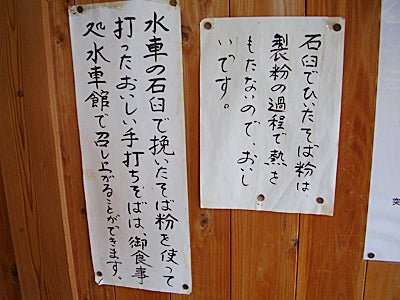 突
石臼でひいたそば粉は
製粉の過程で熱を
もたないので、おいし
いです。
水車の石臼で挽いたそば粉を使って
打ったおいしい手打ちそばは、御食事
処水車館で召し上がることができます。